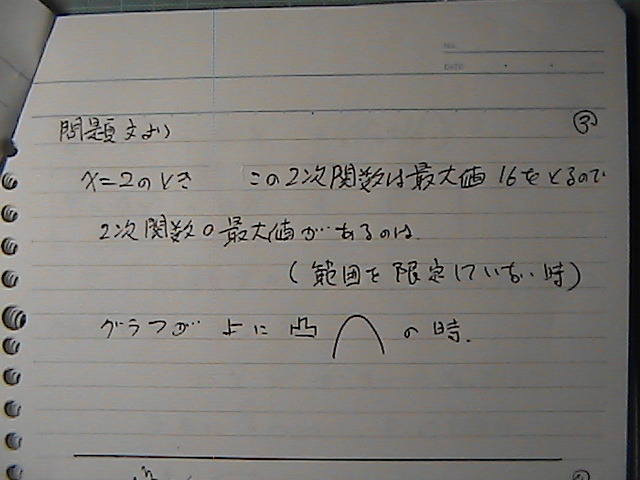 No.
DATE
③
問題文より
x=2のとき この2次関数は最大値16をとるので
2次関数の最大値があるのは.
(範囲を限定していない時)
グラフが 上に凸 の時.